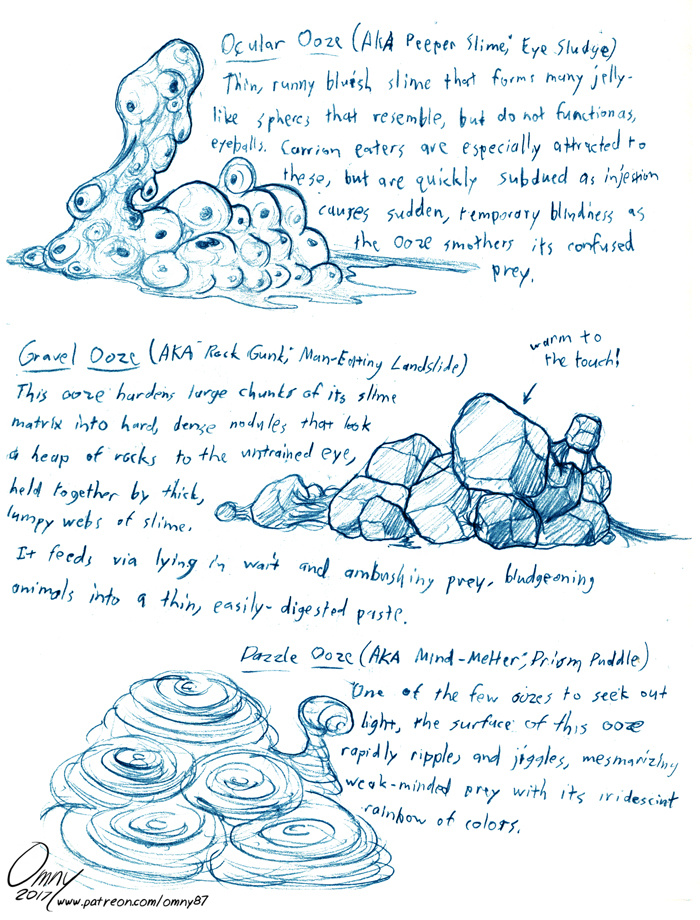 Ocular Ooze (AKA Peeper Slime; Eye Sludge)
Thin, runny bluish slime that forms many jelly-
like spheres that resemble, but do not function as,
eyeballs. Carrion eaters are especially attracted to
these, but are quickly subdued as injestion
causes sudden, temporary blindness as
the ooze smothers its confused
prey.
warm to
the touch!
Gravel Ooze (AKA Rock Gunk; Man-Eating Landslide)
This ooze hardens large chunks of its slime
matrix into hard, dense nodules that look
a heap of rocks to the untrained eye,
held together by thick,
lumpy webs of slime.
It feeds via lying in wait and ambushing prey, bludgeoning
animals into a thin, easily-digested paste.
Dazzle Ooze (AKA Mind-Melter; Prism Puddle)
One of the few oozes to seek out
light, the surface of this ooze
rapidly ripples and jiggles, mesmarizing
weak-minded prey with its iridescint
rainbow of colors.
Omny
2017
www.patreon.com/omny87